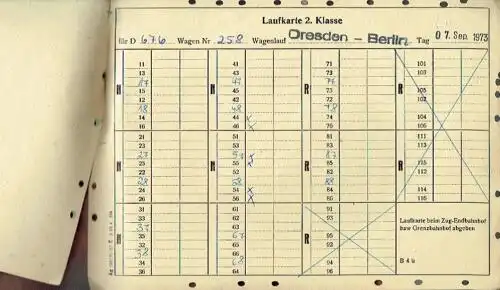 Laufkarte 2. Klasse
für D 676 Wagen Nr. 258 Wagenlauf Dresden – Berlin Tag 07. Sep. 1973
11 41 71 101
13 43 73 103
17 47 77
15 45 75 105
12 42 72 102
18 48 78
14 44 74 104
16 46 76 106
21 51 81 111
23 53 83 113
27 57 87
25 55 85 115
22 52 82 112
28 58 88
24 54 84 114
26 56 86 116
31 61 91
33 63 93
37 67
35 65 95
32 62 92
38 68
34 64 94
36 66 96
Laufkarte beim Zug-Endbahnhof
bzw Grenzbahnhof abgeben